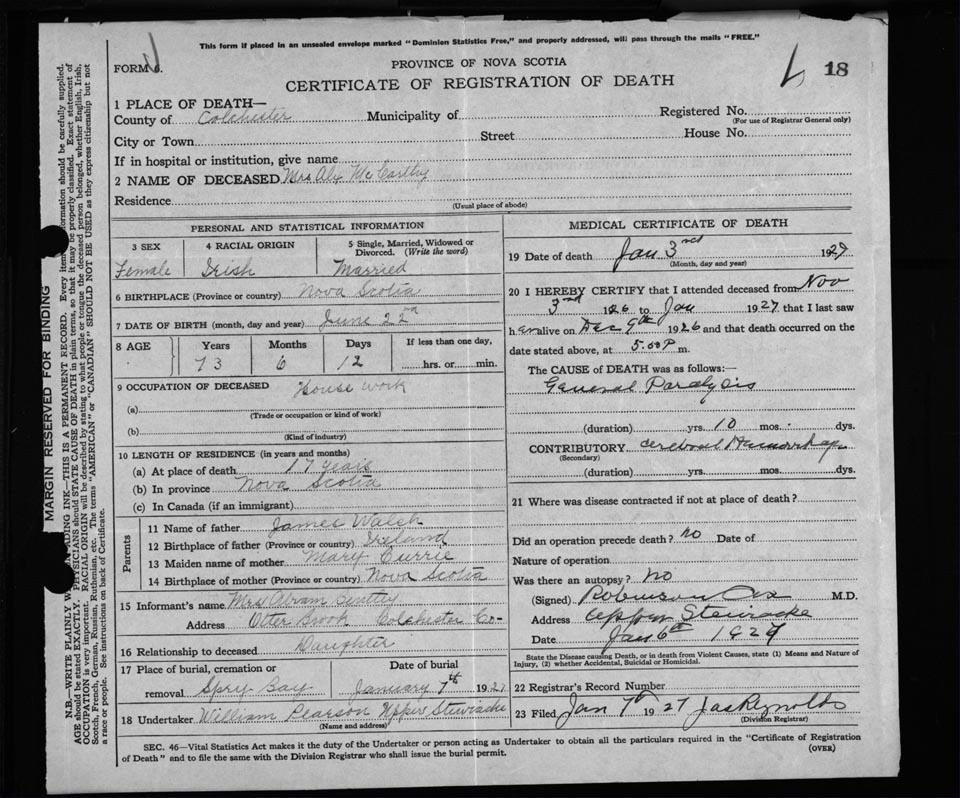 This form if placed in an unsealed envelope marked "Dominion Statistics Free," and properly addressed, will pass through the mails "FREE."
FORM 6.
PROVINCE OF NOVA SCOTIA
CERTIFICATE OF REGISTRATION OF DEATH
18
1 PLACE OF DEATH—
County of Colchester Municipality of Registered No.
(For use of Registrar General only)
City or Town Street House No.
If in hospital or institution, give name
2 NAME OF DECEASED Mrs Alx McCarthy
Residence
(Usual place of abode)
PERSONAL AND STATISTICAL INFORMATION
3 SEX 4 RACIAL ORIGIN 5 Single, Married, Widowed or Divorced. (Write the word)
Female Irish Married
6 BIRTHPLACE (Province or country) Nova Scotia
7 DATE OF BIRTH (month, day and year) June 22nd
8 AGE Years Months Days If less than one day,
73 6 12 hrs. or min.
9 OCCUPATION OF DECEASED House work
(a)
(Trade or occupation or kind of work)
(b)
(Kind of industry)
10 LENGTH OF RESIDENCE (in years and months)
(a) At place of death 17 years
(b) In province Nova Scotia
(c) In Canada (if an immigrant)
Parents
11 Name of father James Walsh
12 Birthplace of father (Province or country) Ireland
13 Maiden name of mother Mary Currie
14 Birthplace of mother (Province or country) Nova Scotia
15 Informant's name Mrs Abram
Address Otter Brook Colchester Co-
16 Relationship to deceased Daughter
17 Place of burial, cremation or removal Spry Bay Date of burial January 7th 1927
18 Undertaker William Pearson Upper Stewiacke
(Name and address)
MEDICAL CERTIFICATE OF DEATH
19 Date of death Jan 3rd 1927
(Month, day and year)
20 I HEREBY CERTIFY that I attended deceased from Nov
3rd 1926 to Jan 1927 that I last saw
her alive on Dec 9th 1926 and that death occurred on the
date stated above, at 5.00 P m.
The CAUSE of DEATH was as follows:—
General Paralysis
(duration) yrs. 10 mos. dys.
CONTRIBUTORY cerebral Hemorrhage
(Secondary)
(duration) yrs. mos. dys.
21 Where was disease contracted if not at place of death?
Did an operation precede death? no Date of
Nature of operation
Was there an autopsy? no
(Signed) Robinson Cox M.D.
Address Upper Stewiacke
Date Jan 6th 1927
State the Disease causing Death, or in death from Violent Causes, state (1) Means and Nature of
Injury, (2) whether Accidental, Suicidal or Homicidal.
22 Registrar's Record Number
23 Filed Jan 7th 1927 Jas Reynolds
(Division Registrar)
SEC. 46—Vital Statistics Act makes it the duty of the Undertaker or person acting as Undertaker to obtain all the particulars required in the "Certificate of Registration
of Death" and to file the same with the Division Registrar who shall issue the burial permit.
(OVER)
MARGIN RESERVED FOR BINDING
N.B.—WRITE PLAINLY ADING INK—THIS IS A PERMANENT RECORD. Every item ormation should be carefully supplied.
AGE should be stated EXACTLY. PHYSICIANS should STATE CAUSE OF DEATH in plain terms, so that it may be properly classified. Exact statement of
OCCUPATION is very important. RACIAL ORIGIN will be described by stating to what people or tongue the deceased person belonged, whether English, Irish,
Scotch, French, German, Russian, Ruthenian, etc. The terms "AMERICAN" or "CANADIAN" SHOULD NOT BE USED as they express citizenship but not
a race or people. See instructions on back of Certificate.